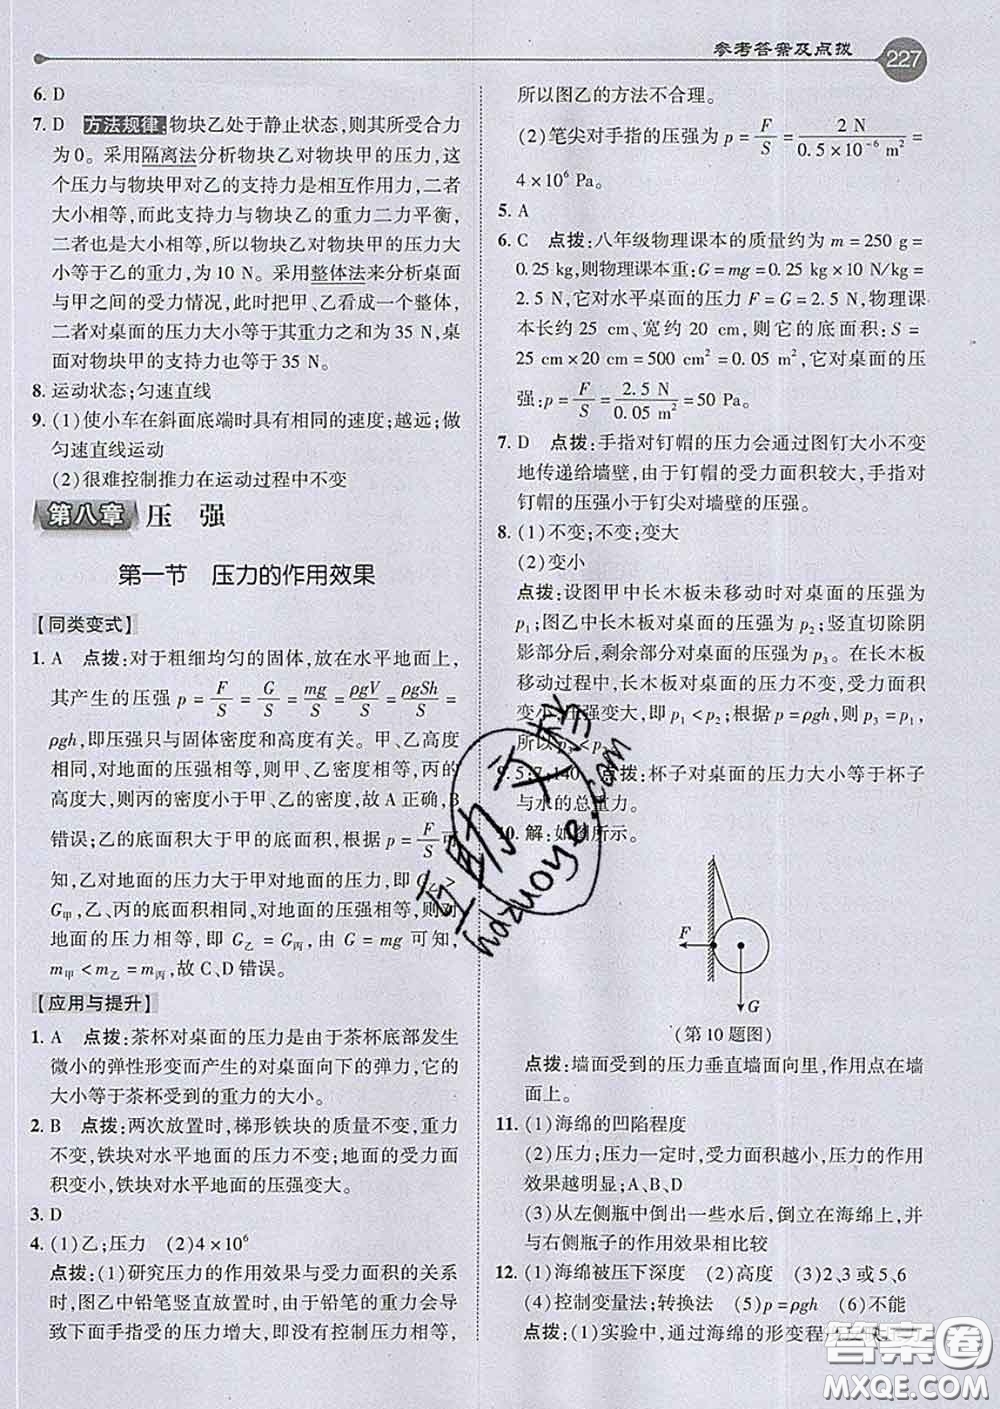 参考答案及点拨 227
6. D
7. D 方法规律:物块乙处于静止状态,则其所受合力
为0。采用隔离法分析物块乙对物块甲的压力,这
个压力与物块甲对乙的支持力是相互作用力,二者
大小相等,而此支持力与物块乙的重力二力平衡,
二者也是大小相等,所以物块乙对物块甲的压力大
小等于乙的重力,为 10 N。采用整体法来分析桌面
与甲之间的受力情况,此时把甲、乙看成一个整体,
二者对桌面的压力大小等于其重力之和为 35 N,桌
面对物块甲的支持力也等于 35 N。
8. 运动状态;匀速直线
9. (1)使小车在斜面底端时具有相同的速度;越远;做
匀速直线运动
(2)很难控制推力在运动过程中不变
第八章 压 强
第一节 压力的作用效果
【同类变式】
1. A 点拨:对于粗细均匀的固体,放在水平地面上,
其产生的压强 p = F/S = G/S = mg/S = ρgV/S = ρgSh/S =
ρgh,即压强只与固体密度和高度有关。甲、乙高度
相同,对地面的压强相等,则甲、乙密度相等,丙的
高度大,则丙的密度小于甲、乙的密度,故 A 正确,B
错误;乙的底面积大于甲的底面积,根据 p = F/S 可
知,乙对地面的压力大于甲对地面的压力,即 G乙 >
G甲,乙、丙的底面积相同,对地面的压强相等,则对
地面的压力相等,即 G乙 = G丙,由 G = mg 可知,
m甲 < m乙 = m丙,故 C、D 错误。
【应用与提升】
1. A 点拨:茶杯对桌面的压力是由于茶杯底部发生
微小的弹性形变而产生的对桌面向下的弹力,它的
大小等于茶杯受到的重力的大小。
2. B 点拨:两次放置时,梯形铁块的质量不变,重力
不变,铁块对水平地面的压力不变;地面的受力面
积变小,铁块对水平地面的压强变大。
3. D
4. (1)乙;压力 (2)4×10⁶
点拨:(1)研究压力的作用效果与受力面积的关系
时,图乙中铅笔竖直放置时,由于铅笔的重力会导
致下面手指受的压力增大,即没有控制压力相等,
所以图乙的方法不合理。
(2)笔尖对手指的压强为 p = F/S = 2 N/(0.5×10⁻⁶ m²) =
4×10⁶ Pa。
5. A
6. C 点拨:八年级物理课本的质量约为 m = 250 g =
0.25 kg,则物理课本重:G = mg = 0.25 kg×10 N/kg =
2.5 N,它对水平桌面的压力 F = G = 2.5 N,物理课
本长约 25 cm、宽约 20 cm,则它的底面积:S =
25 cm×20 cm = 500 cm² = 0.05 m²,它对桌面的压
强:p = F/S = 2.5 N/0.05 m² = 50 Pa。
7. D 点拨:手指对钉帽的压力会通过图钉大小不变
地传递给墙壁,由于钉帽的受力面积较大,手指对
钉帽的压强小于钉尖对墙壁的压强。
8. (1)不变;不变;变大
(2)变小
点拨:设图甲中长木板未移动时对桌面的压强为
p₁;图乙中长木板对桌面的压强为 p₂;竖直切除阴
影部分后,剩余部分对桌面的压强为 p₃。在长木板
移动过程中,长木板对桌面的压力不变,受力面积
变小,压强变大,即 p₁ < p₂;根据 p = ρgh,则 p₃ = p₁,
所以 p₃ < p₂。
9. 5;7;140 点拨:杯子对桌面的压力大小等于杯子
与水的总重力。
10. 解:如图所示。
F
G
(第 10 题图)
点拨:墙面受到的压力垂直墙面向里,作用点在墙
面上。
11. (1)海绵的凹陷程度
(2)压力;压力一定时,受力面积越小,压力的作用
效果越明显;A、B、D
(3)从左侧瓶中倒出一些水后,仍放在海绵上,并
与右侧瓶子的作用效果相比较
12. (1)海绵被压下深度 (2)高度 (3)2、3或5、6
(4)控制变量法;转换法 (5)p = ρgh (6)不能
点拨:(1)实验中,通过海绵的形变程
互助文档
hazuoye.com
答案卷
MXQE.COM